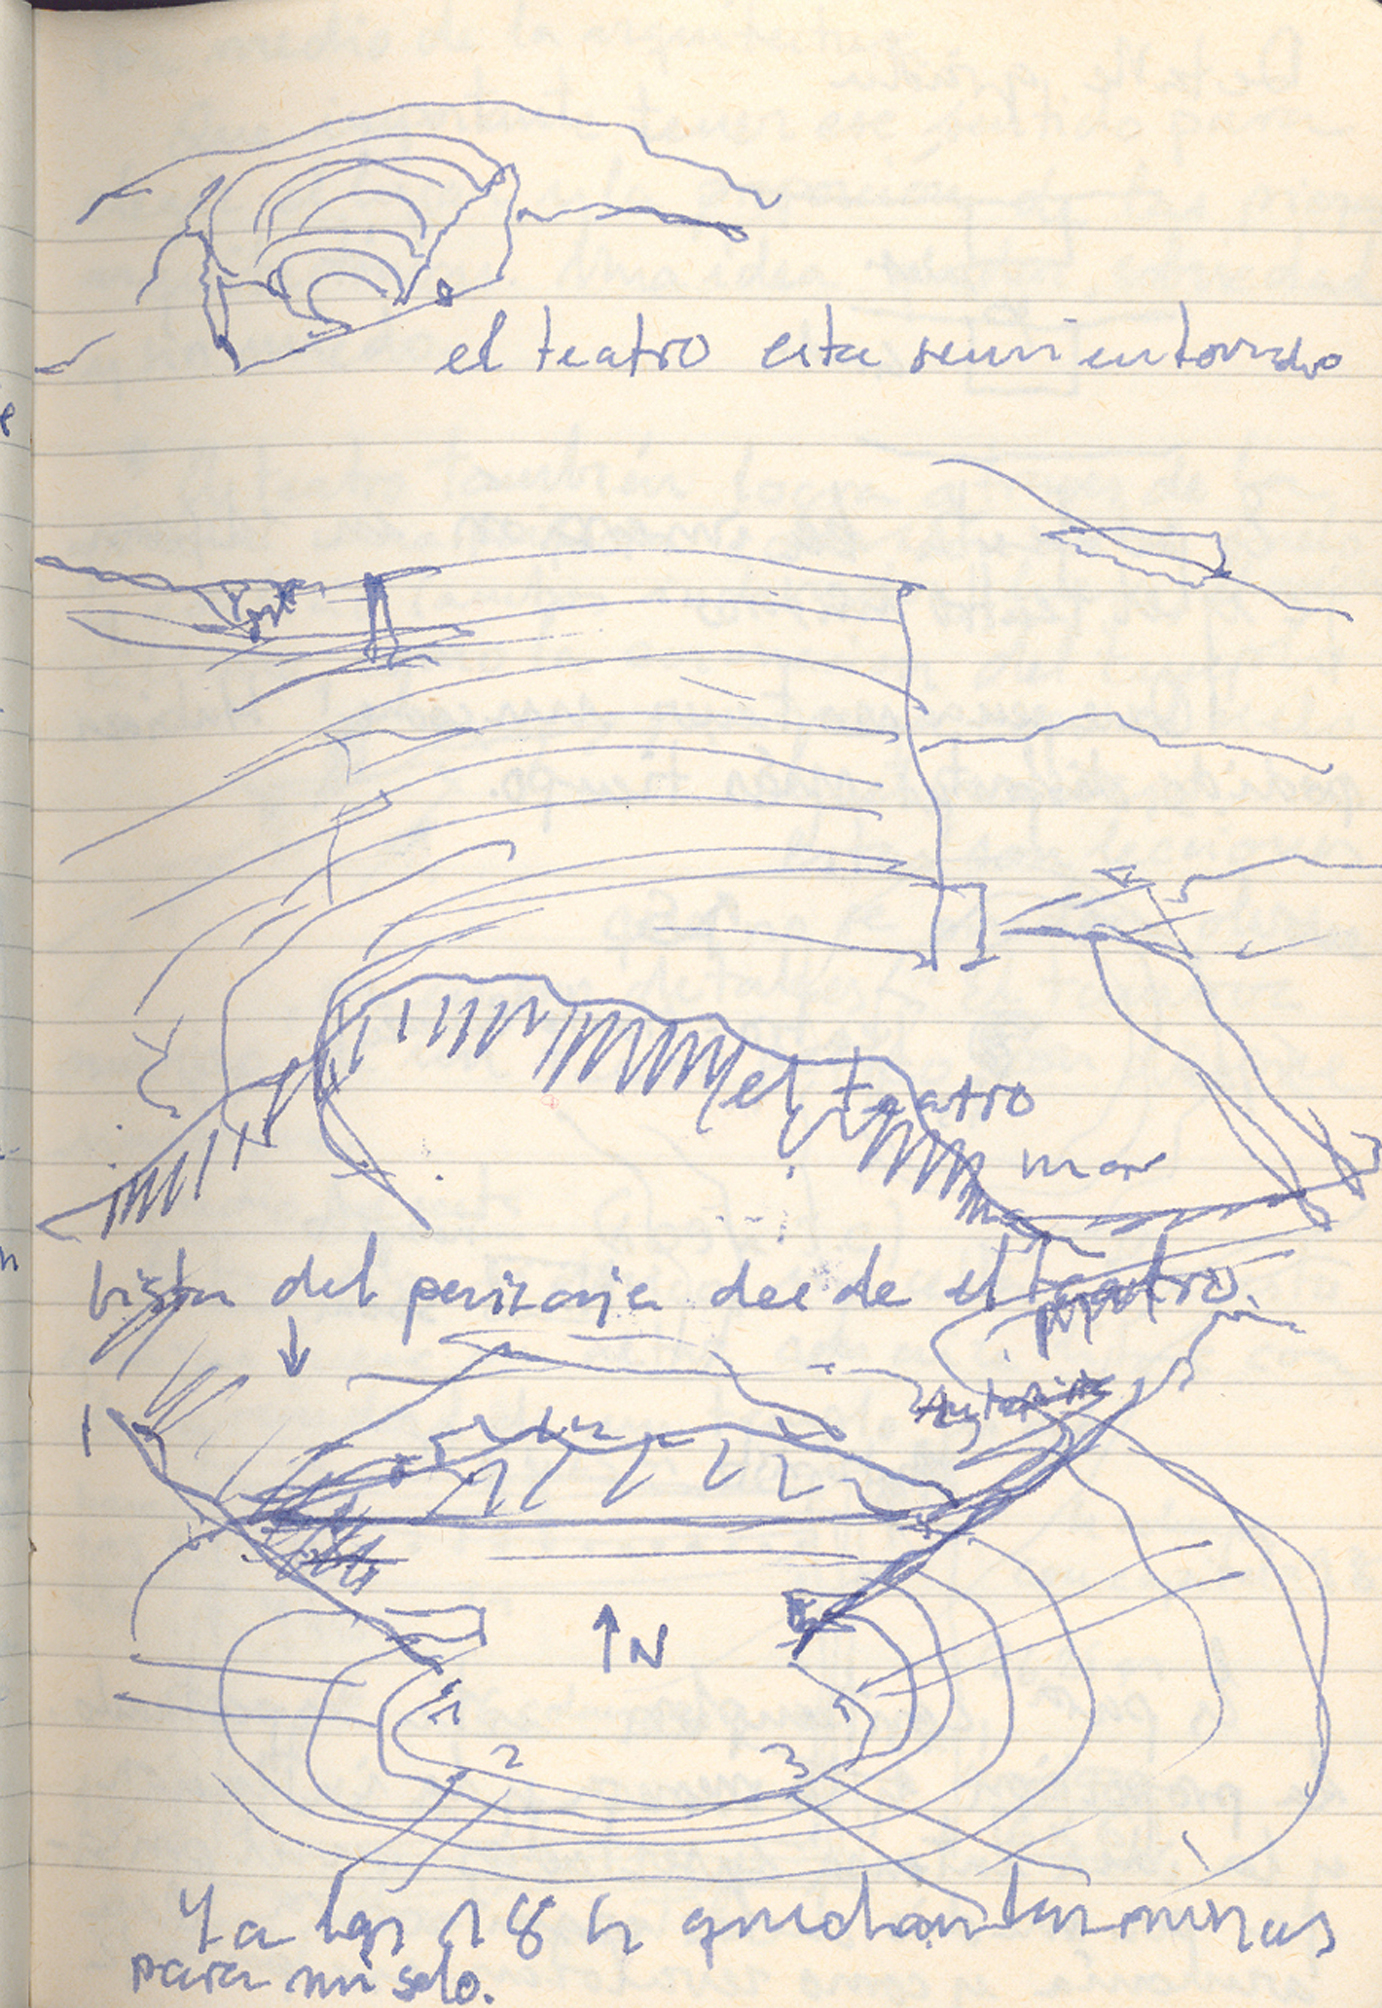 el teatro esta semi enterrado
el teatro
mar
vista del paizaje desde el teatro.
1
N
1
1
2
3
Ya las 18 h quedan las ruinas
para mi solo.